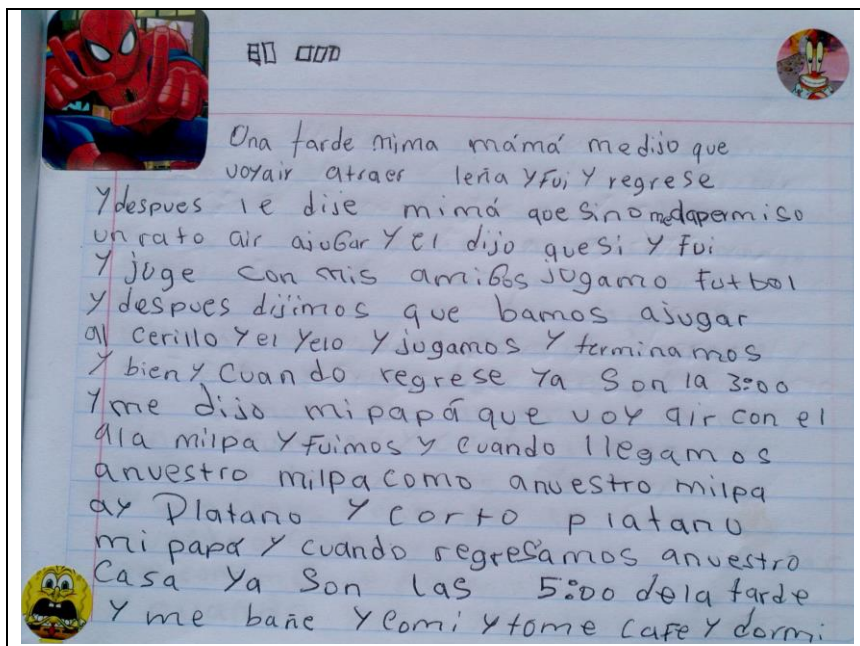 Una tarde mima mámá me dijo que
voyair atraer leña y fui y regrese
y despues le dije mimá que sino medapermiso
un rato air ajugar y el dijo quesi y fui
y juge con mis amigos jugamo futbol
y despues dijimos que bamos ajugar
al cerillo y el yelo y jugamos y terminamos
y bien y cuan do regrese ya son la 3:00
y me dijo mipapá que voy air con el
ala milpa y fuimos y cuando llegamos
anuestro milpa como anuestro milpa
ay Platano y corto platano
mi papá y cuando regresamos anuestro
casa ya son las 5:00 dela tarde
y me bañe y comi y tome cafe y dormi